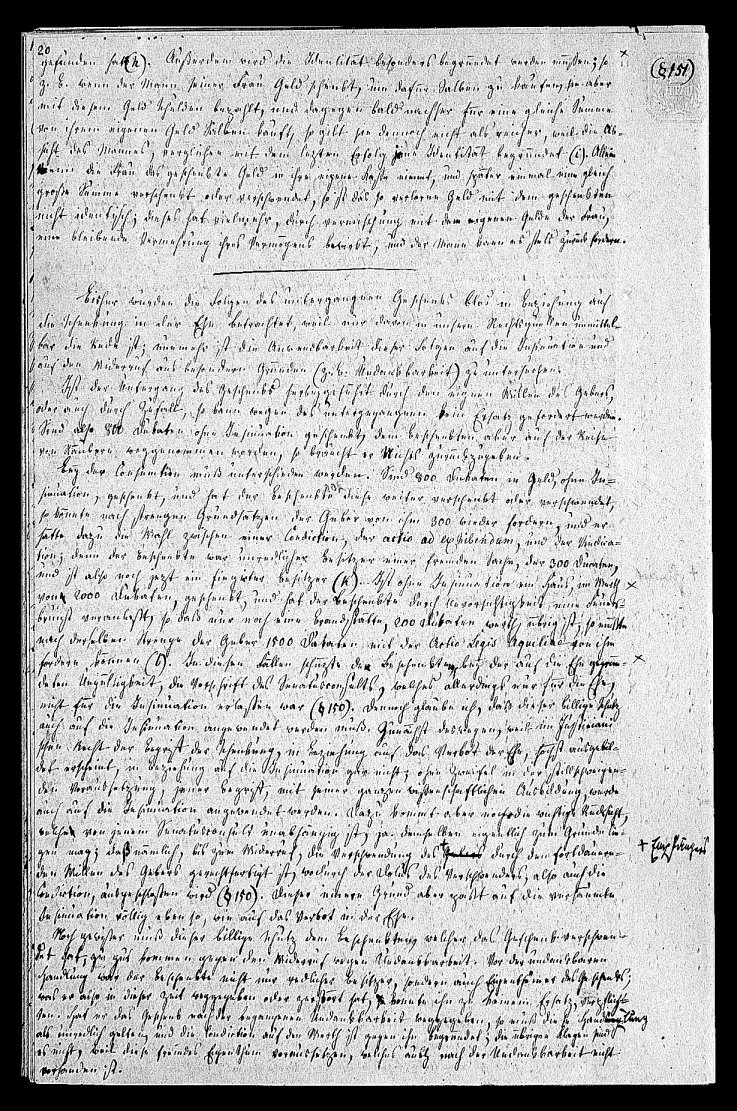 20
(§ 151)
gefunden hat (h). Außerdem wird die Identität besonders begründet werden müssen; so
z. B. wenn der Mann seiner Frau Geld schenkt, um dafür Salben zu kaufen, sie aber
mit diesem Geld Schulden bezahlt, und dagegen bald nachher für eine gleiche Summe
von ihrem eigenen Geld Salben kauft, so gilt sie dennoch nicht als reicher, weil die Ab-
sicht des Mannes, verglichen mit dem letzten Erfolg jene Identität begründet (i). Allein
wenn die Frau das geschenkte Geld in ihre eigene Kasse nimmt, und später einmal eine gleich
große Summe verschenkt oder verschwendet, so ist das so verlorne Geld mit dem geschenkten
nicht identisch; dieses hat vielmehr, durch Vermischung mit dem eigenen Gelde der Frau,
eine bleibende Vermehrung ihres Vermögens bewirkt, und der Mann kann es stets zurück fordern.
Bisher wurden die Folgen des untergegangnen Geschenks blos in Beziehung auf
die Schenkung in der Ehe betrachtet, weil nur davon in unsern Rechtsquellen unmittel-
bar die Rede ist; nunmehr ist die Anwendbarkeit dieser Folgen auf die Insinuation und
auf den Widerruf aus besondern Gründen (z. B. Undankbarkeit) zu untersuchen.
Ist der Untergang des Geschenks herbeygeführt durch den eignen Willen des Gebers,
oder auch durch Zufall, so kann wegen des untergegangenen kein Ersatz gefordert werden.
Sind also 800 Dukaten ohne Insinuation geschenkt, dem Beschenkten aber auf der Reise
von Räubern weggenommen worden, so braucht er Nichts zurückzugeben.
Bey der Consumtion muß unterschieden werden. Sind 800 Dukaten in Geld, ohne In-
sinuation, geschenkt, und hat der Beschenkte diese weiter verschenkt oder verschwendet,
so könnte nach strengen Grundsätzen der Geber von ihm 300 wieder fordern, und er
hätte dazu die Wahl zwischen einer Condiction, der actio ad exhibendum, und der Vindica-
tion; denn der Beschenkte war unredlicher Besitzer einer fremden Sache, der 300 Ducaten,
und ist also noch jetzt ein fingirter Besitzer (k). Ist ohne Insinuation ein Haus, im Werth
von 2000 Dukaten, geschenkt, und hat der Beschenkte durch Unvorsichtigkeit, eine Feuers-
brunst veranlaßt, so daß nur noch eine Brandstätte, 200 Dukaten werth, übrig ist, so müßte
nach derselben Strenge der Geber 1500 Dukaten mit der Actio Legis Aquiliae von ihm
fordern können (l). In diesen Fällen schützte den Beschenkten, bey der auf die Ehe gegrün-
deten Ungültigkeit, die Vorschrift des Senatusconsults, welches allerdings nur für die Ehe,
nicht für die Insinuation erlassen war (§ 150). Dennoch glaube ich, daß dieser billige Schutz
auch auf die Insinuation angewendet werden muß. Zunächst deswegen, weil im Justiniani-
schen Recht der Begriff der Schenkung, in Beziehung auf das Verbot der Ehe, höchst ausgebil-
det erscheint, in Beziehung auf die Insinuation gar nicht; ohne Zweifel in der stillschweigen-
den Voraussetzung, jener Begriff, mit seiner ganzen wissenschaftlichen Ausbildung, werde
auch auf die Insinuation angewendet werden. Dazu kommt aber noch die wichtige Rücksicht,
welche von jenem Senatusconsult unabhängig ist, ja demselben eigentlich zum Grunde lie-
gen mag; daß nämlich, bis zum Widerruf, die Verschwendung des Gebers durch den fortdauern-
+ Empfängers
den Willen des Gebers gerechtfertigt ist, wodurch der Dolus des Verschwenders, also auch die
Condiction, ausgeschlossen wird (§ 150). Dieser innere Grund aber paßt auf die versäumte
Insinuation völlig eben so, wie auf das Verbot in der Ehe.
Noch gewisser muß dieser billige Schutz dem Beschenkten, welcher das Geschenk verschwen-
det hat, zu gut kommen gegen den Widerruf wegen Undankbarkeit. Vor der undankbaren
Handlung war der Beschenkte nicht nur redlicher Besitzer, sondern auch Eigenthümer des Geschenks,
was er also in dieser Zeit weggegeben oder zerstört hat, konnte ihn zu keinem Ersatz verpflich-
ten. Hat er das Geschenk nach der begangenen Undankbarkeit weggegeben, so muß diese Handlung zwar
als unredlich gelten, und die Condiction auf den Werth ist gegen ihn begründet; die übrigen Klagen sind
es nicht, weil diese fremdes Eigenthum voraussetzen, welches auch nach der Undankbarkeit nicht
vorhanden ist.